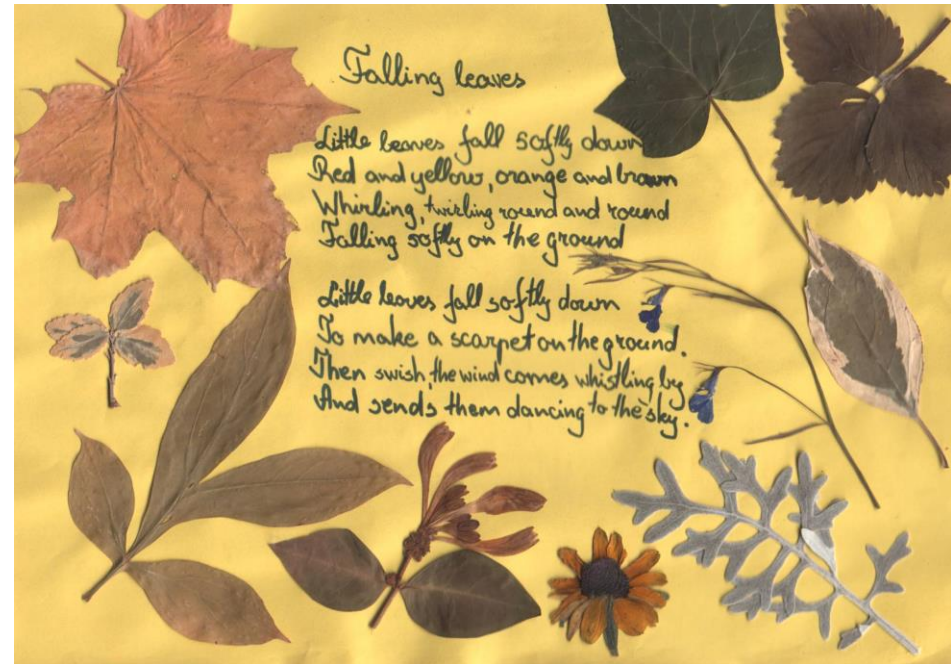 Falling leaves
Little leaves fall softly down
Red and yellow, orange and brown
Whirling, twirling round and round
Falling softly on the ground
Little leaves fall softly down
To make a scarpet on the ground.
Then swish, the wind comes whistling by
And sends them dancing to the sky.